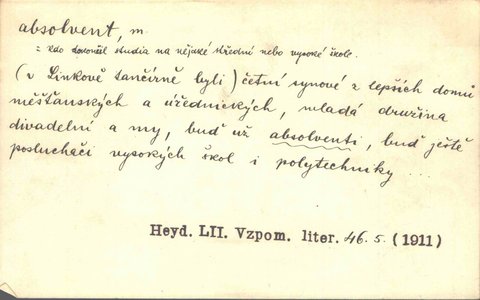 absolvent, m.
= kdo dokončil studia na nějaké střední nebo vysoké škole.
(v Linkově tančírně byli) četní synové z lepších domů
měšťanských a úřednických, mladá družina
divadelní a my, buď už absolventi, buď ještě
posluchači vysokých škol i polytechniky ...
Heyd. LII. Vzpom. liter. 46. 5. (1911)